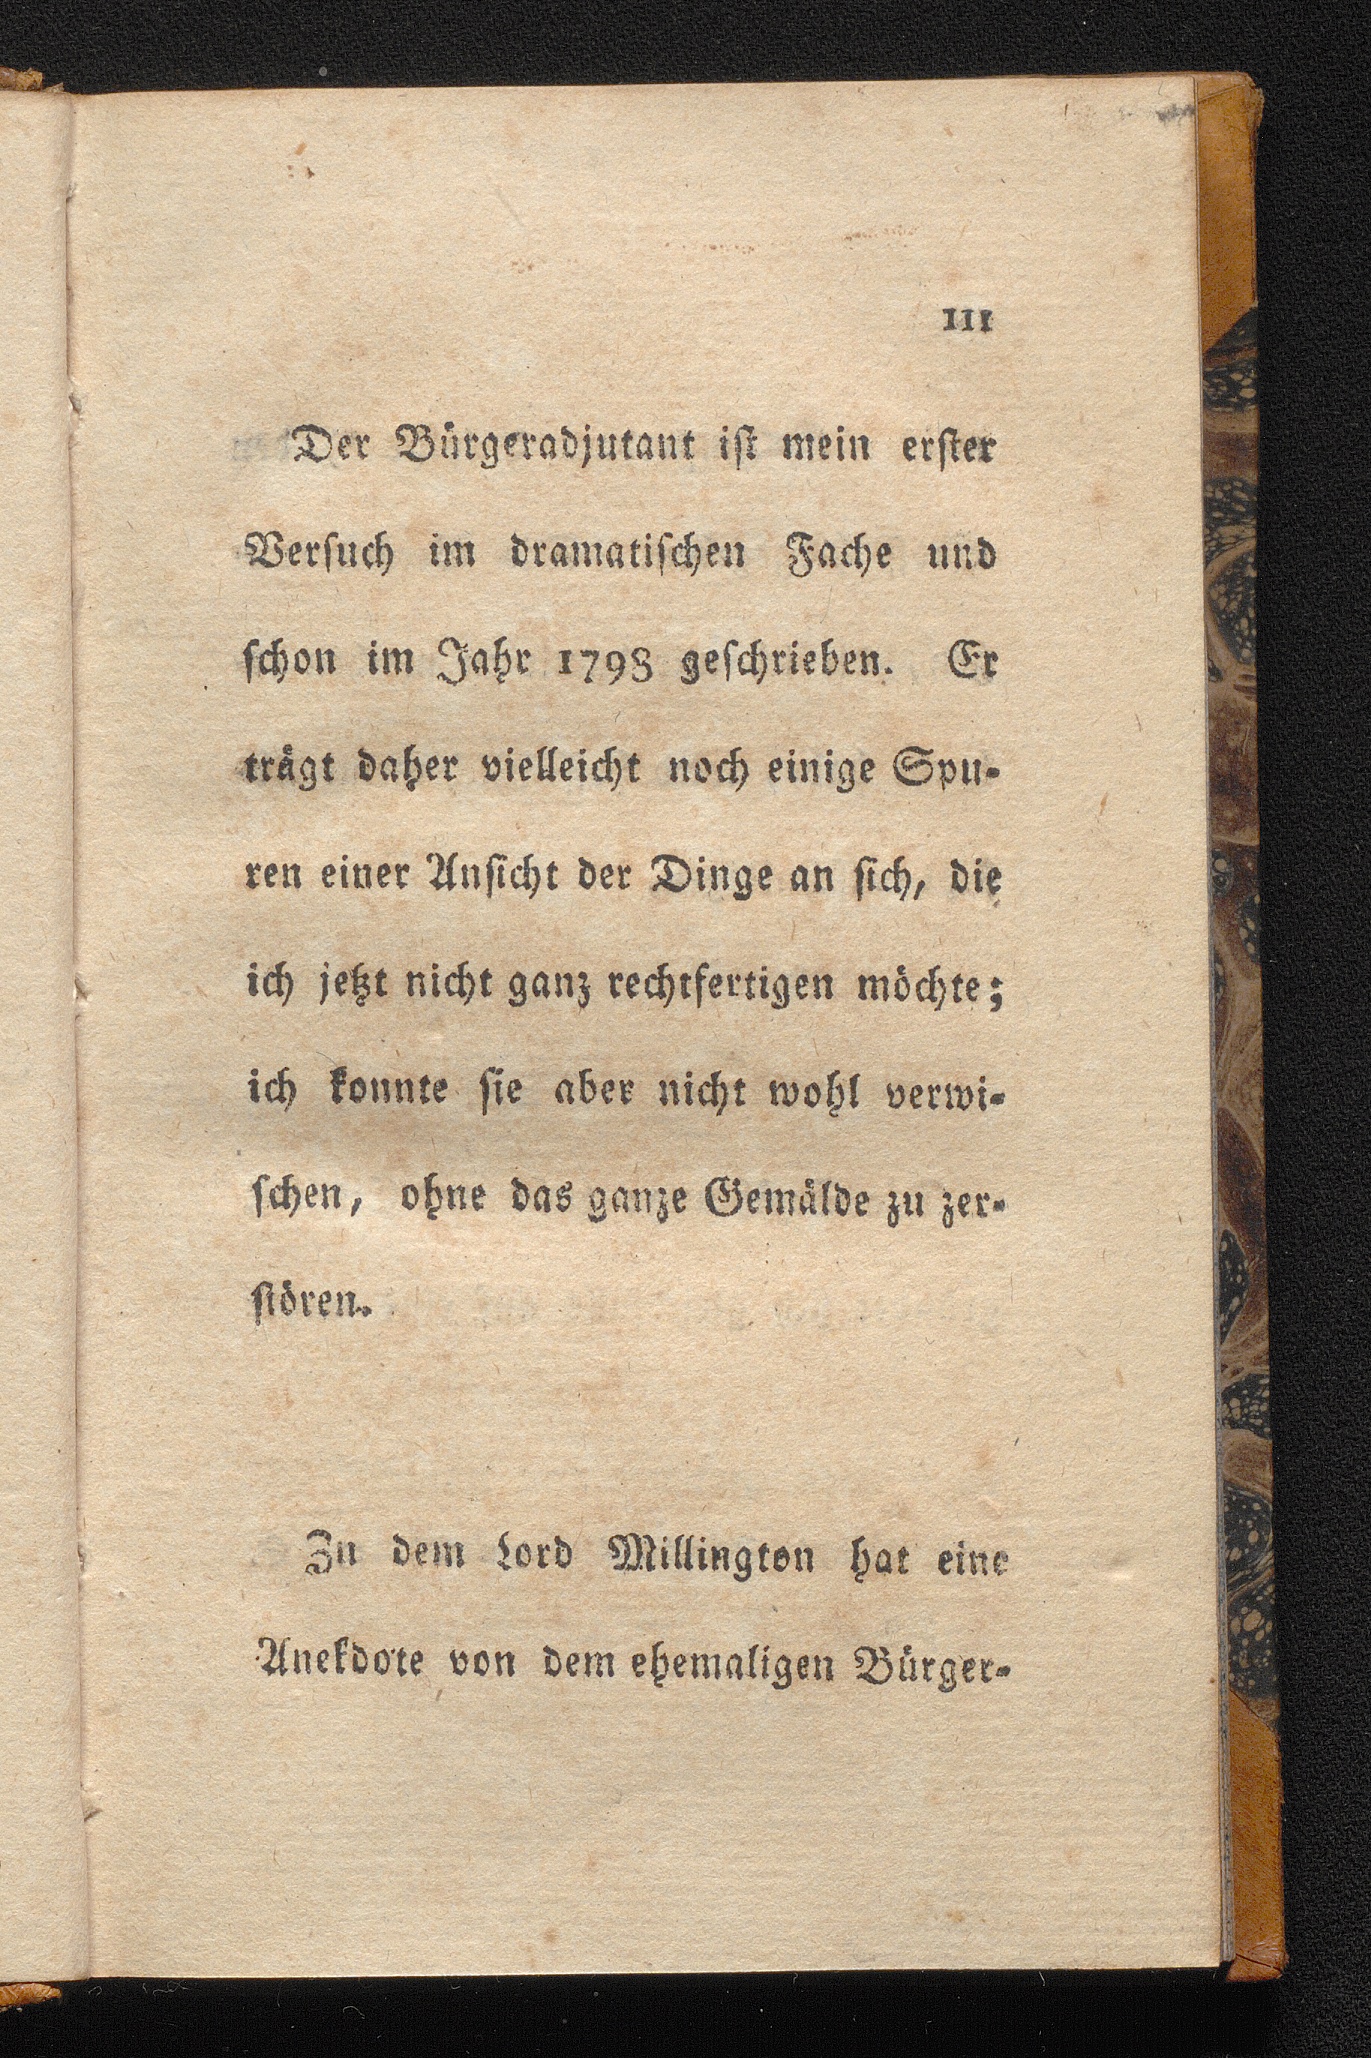 III
Der Bürgeradjutant ist mein erster
Versuch im dramatischen Fache und
schon im Jahr 1798 geschrieben. Er
trägt daher vielleicht noch einige Spu-
ren einer Ansicht der Dinge an sich, die
ich jetzt nicht ganz rechtfertigen möchte;
ich konnte sie aber nicht wohl verwi-
schen, ohne das ganze Gemälde zu zer-
stören.
Zu dem Lord Millington hat eine
Anekdote von dem ehemaligen Bürger-